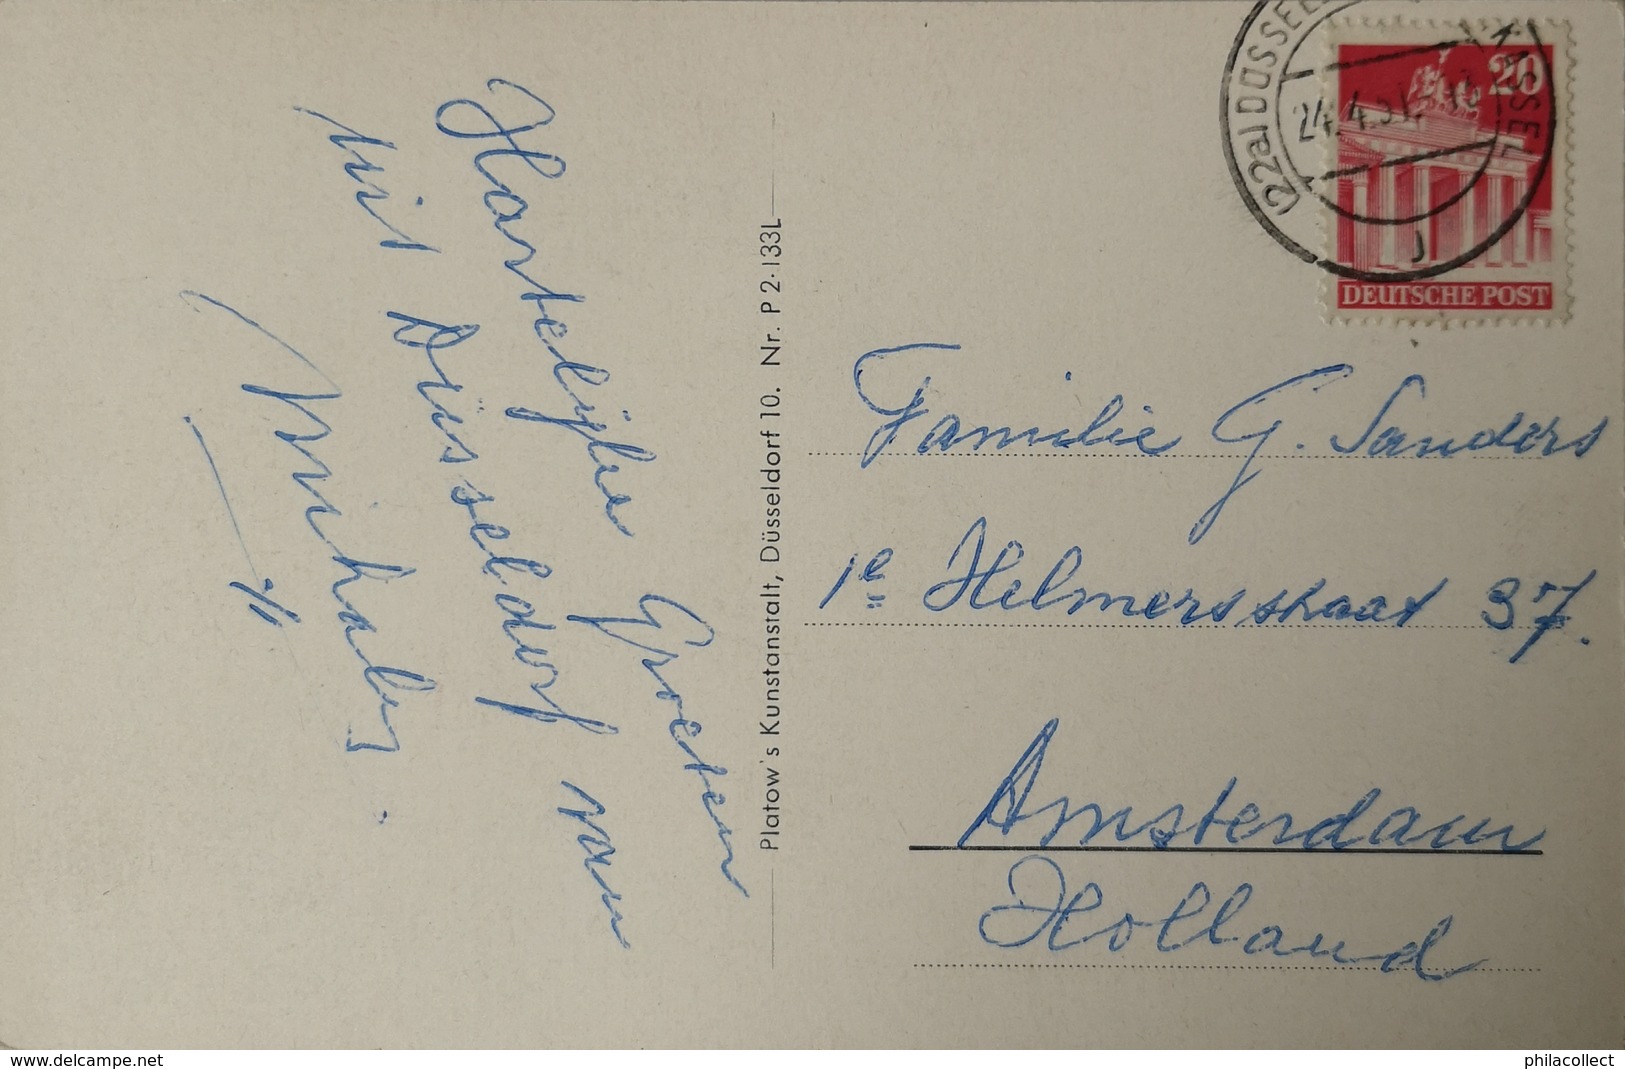 Hartelijke Groeten
uit Düsseldorf van
Platow's Kunstanstalt, Düsseldorf 10. Nr. P 2-133L
(22a) DÜSSEL
24.4.51
J
20
DEUTSCHE POST
Familie G. Sanders
1e Helmersstraat 37.
Amsterdam
Holland
www.delcampe.net
philacollect